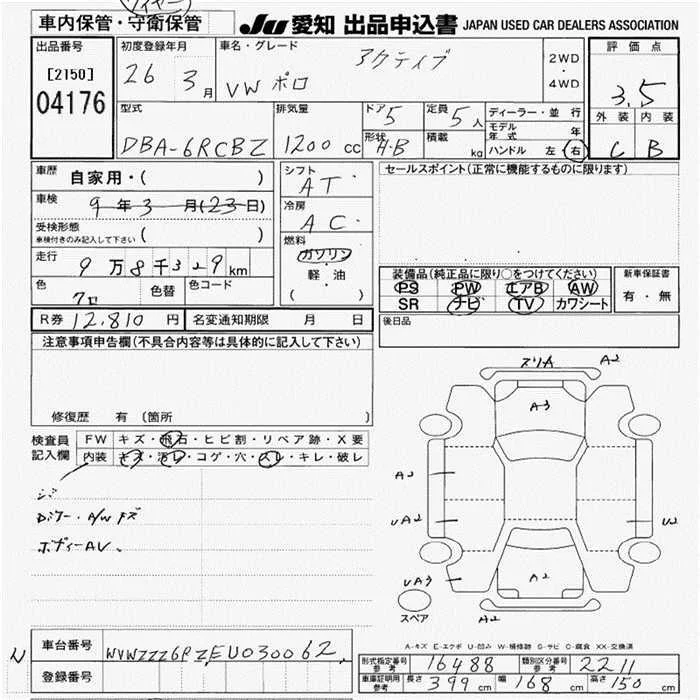 車内保管・守衛保管
JU 愛知 出品申込書 JAPAN USED CAR DEALERS ASSOCIATION
出品番号 [2150] 04176
初度登録年月 26 3月
車名・グレード VW ポロ アクティブ
2WD・4WD
評価点 3.5
外装 C 内装 B
型式 DBA-6RCBZ
排気量 1200 cc
ドア 5 形状 H.B
定員 5人 積載 kg
ディーラー・並行
モデル年式 年
ハンドル 左・右
車歴 自家用・( )
車検 9年3月(23日)
受検形態 車検付きのみ記入して下さい ( )
走行 9万8千329km
色 クロ 色替 色コード
シフト AT
冷房 AC
燃料 ガソリン 軽・油 ( )
セールスポイント(正常に機能するものに限ります)
装備品(純正品に限り○をつけてください)
PS PW エアB AW
SR ナビ TV カワシート
新車保証書 有・無
R券 12,810 円 名変通知期限 月 日
後日品
注意事項申告欄(不具合内容等は具体的に記入して下さい)
修復歴 有 (箇所 )
検査員記入欄
FW キズ・飛石・ヒビ割・リペア跡・X要
内装 キズ・汚レ・コゲ・穴・スレ・キレ・破レ
A/Wキズ
ボディーAU、
スリA A2
A3
A2
UA2
UA3
A2
A2
スペア
A-キズ E-エクボ U-凹み W-補修跡 S-サビ C-腐食 XX-交換済
車台番号 WVWZZZ6RZEU030062
登録番号
形式指定番号 参考 16488 類別区分番号 参考 2211
車庫証明用 参考 長さ 399 cm 幅 168 cm 高さ 150 cm